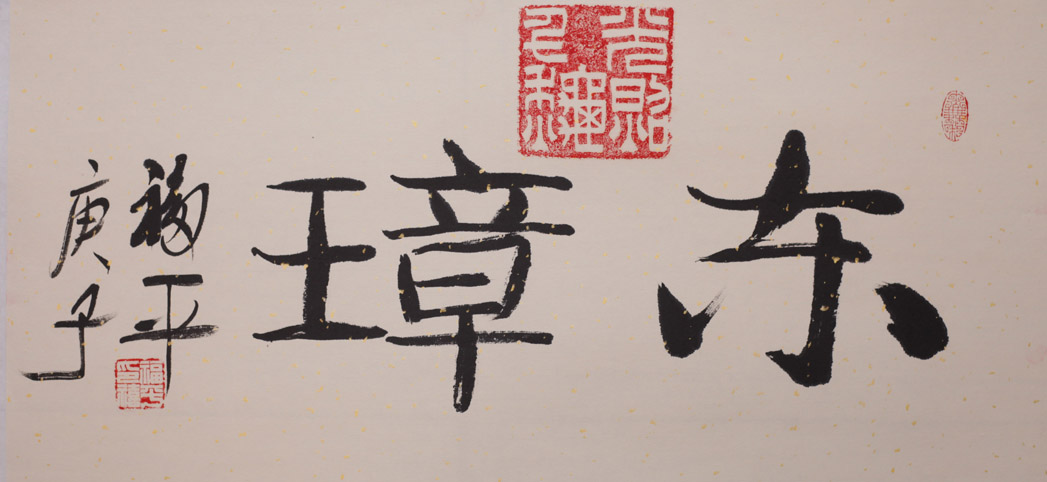 东璋
福平
庚子